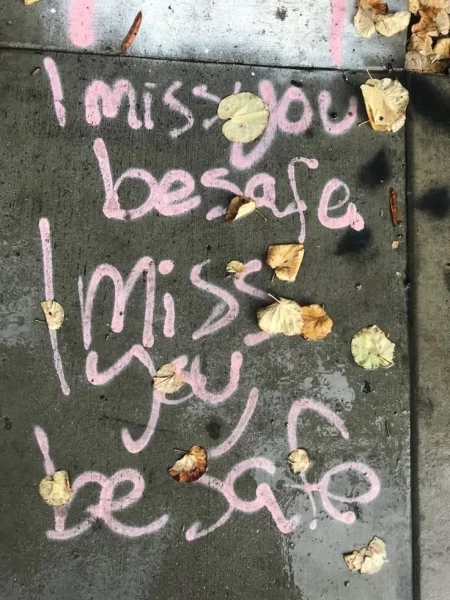 I miss you
be safe
I miss
you
be safe